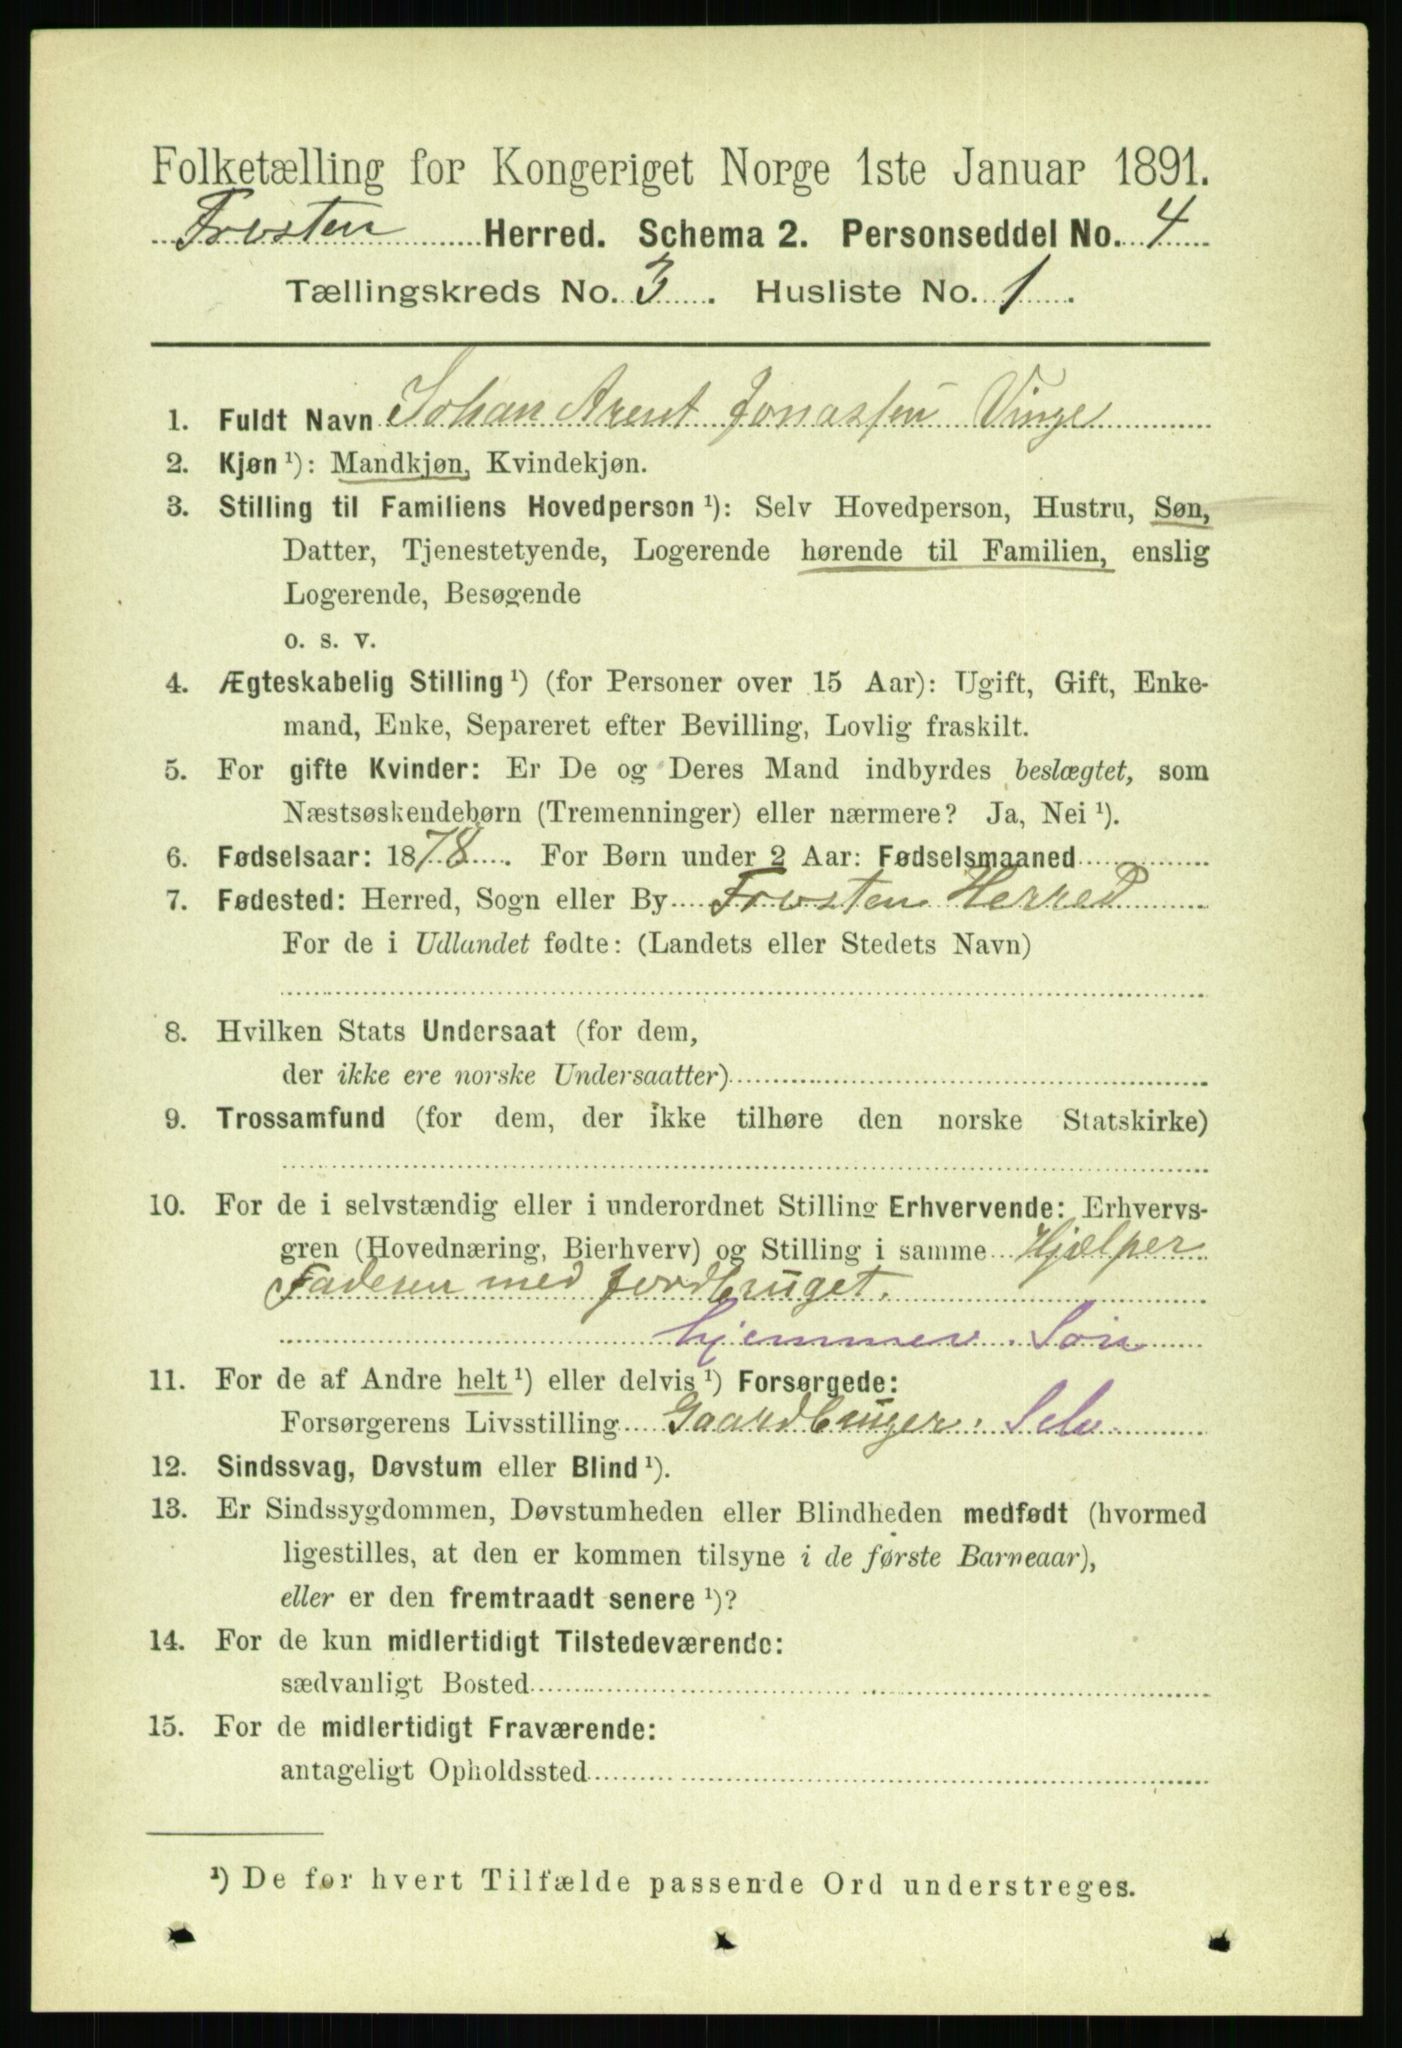 Folketælling for Kongeriget Norge 1ste Januar 1891.
Frosten Herred. Schema 2. Personseddel No. 4
Tællingskreds No. 3. Husliste No. 1.
1. Fuldt Navn Johan Arent Jonassen Vinge
2. Kjøn ¹): Mandkjøn, Kvindekjøn.
3. Stilling til Familiens Hovedperson ¹): Selv Hovedperson, Hustru, Søn,
Datter, Tjenestetyende, Logerende hørende til Familien, enslig
Logerende, Besøgende
o. s. v.
4. Ægteskabelig Stilling ¹) (for Personer over 15 Aar): Ugift, Gift, Enke-
mand, Enke, Separeret efter Bevilling, Lovlig fraskilt.
5. For gifte Kvinder: Er De og Deres Mand indbyrdes beslægtet, som
Næstsøskendebørn (Tremenninger) eller nærmere? Ja, Nei ¹).
6. Fødselsaar: 1878. For Børn under 2 Aar: Fødselsmaaned
7. Fødested: Herred, Sogn eller By Frosten Herred
For de i Udlandet fødte: (Landets eller Stedets Navn)
8. Hvilken Stats Undersaat (for dem,
der ikke ere norske Undersaatter)
9. Trossamfund (for dem, der ikke tilhøre den norske Statskirke)
10. For de i selvstændig eller i underordnet Stilling Erhvervende: Erhvervs-
gren (Hovednæring, Bierhverv) og Stilling i samme Hjælper
Faderen med Jordbruget.
hjemmev. Søn
11. For de af Andre helt ¹) eller delvis ¹) Forsørgede:
Forsørgerens Livsstilling Gaardbruger. Selv
12. Sindssvag, Døvstum eller Blind ¹).
13. Er Sindssygdommen, Døvstumheden eller Blindheden medfødt (hvormed
ligestilles, at den er kommen tilsyne i de første Barneaar),
eller er den fremtraadt senere ¹)?
14. For de kun midlertidigt Tilstedeværende:
sædvanligt Bosted
15. For de midlertidigt Fraværende:
antageligt Opholdssted
¹) De for hvert Tilfælde passende Ord understreges.